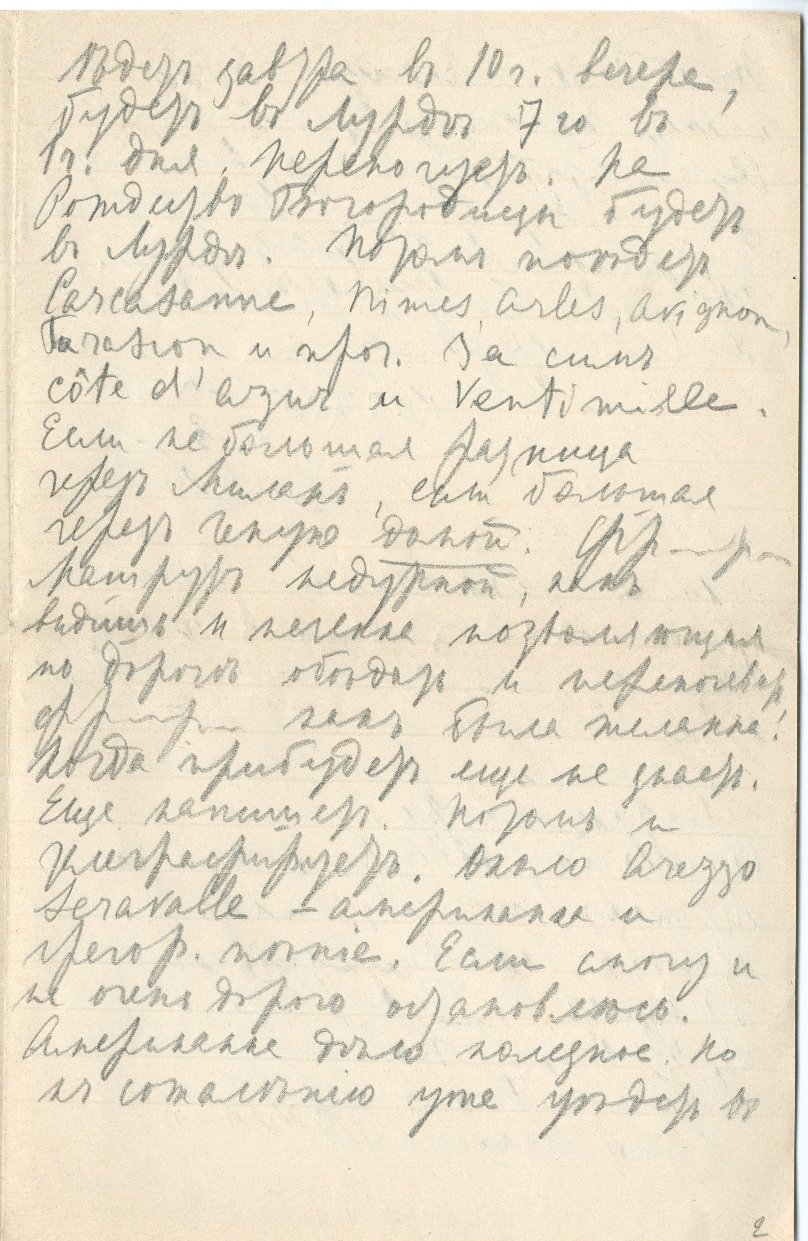 Ѣдетъ завтра въ 10 ч. вечера,
будетъ въ Лурдѣ 7го въ
1 ч. дня. Переночуетъ. На
Рождество Богородицы будетъ
въ Лурдѣ. Потомъ поѣдетъ
Carcasanne, Nimes, Arles, Avignon,
Tarascon и проч. За симъ
côte d'azur и Ventimille.
Если не большая разница
черезъ Миланъ, если большая
черезъ Геную домой.
Маршрутъ недурной, какъ
видишь и печенка позволяющая
по дорогѣ обѣдать и переночевать
какъ была желанна!
Когда прибудетъ еще не знаетъ.
Еще напишетъ. Потомъ и
телеграфируетъ. Около Arezzo
Seravalle – американка и
грегор. пѣніе. Если смогу и
не очень дорого остановлюсь.
Американка дѣло полезное. Но
къ сожалѣнію уже уѣдетъ во
2